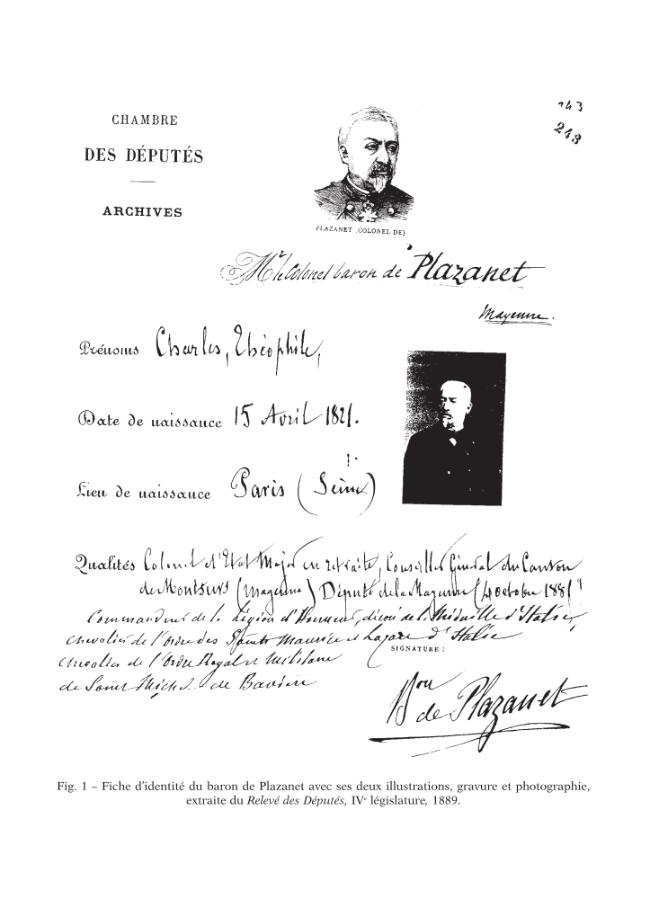 CHAMBRE
DES DÉPUTÉS
ARCHIVES
143
243
PLAZANET (COLONEL DE)
Mr le Colonel baron de Plazanet
Mayenne.
Prénoms Charles, Théophile,
Date de naissance 15 Avril 1821.
Lieu de naissance Paris (Seine)
Qualités Colonel d'Etat Major en retraite, Conseiller Général du Canton
de Montsurs (Mayenne) Député de la Mayenne (4 octobre 188
Commandeur de la Légion d'Honneur, décoré de la Médaille d'Italie,
chevalier de l'ordre des Saints Maurice et Lazare d'Italie
SIGNATURE :
chevalier de l'Ordre Royal et Militaire
de Saint Michel de Bavière
Bon de Plazanet
Fig. 1 – Fiche d'identité du baron de Plazanet avec ses deux illustrations, gravure et photographie,
extraite du Relevé des Députés, IVe législature, 1889.